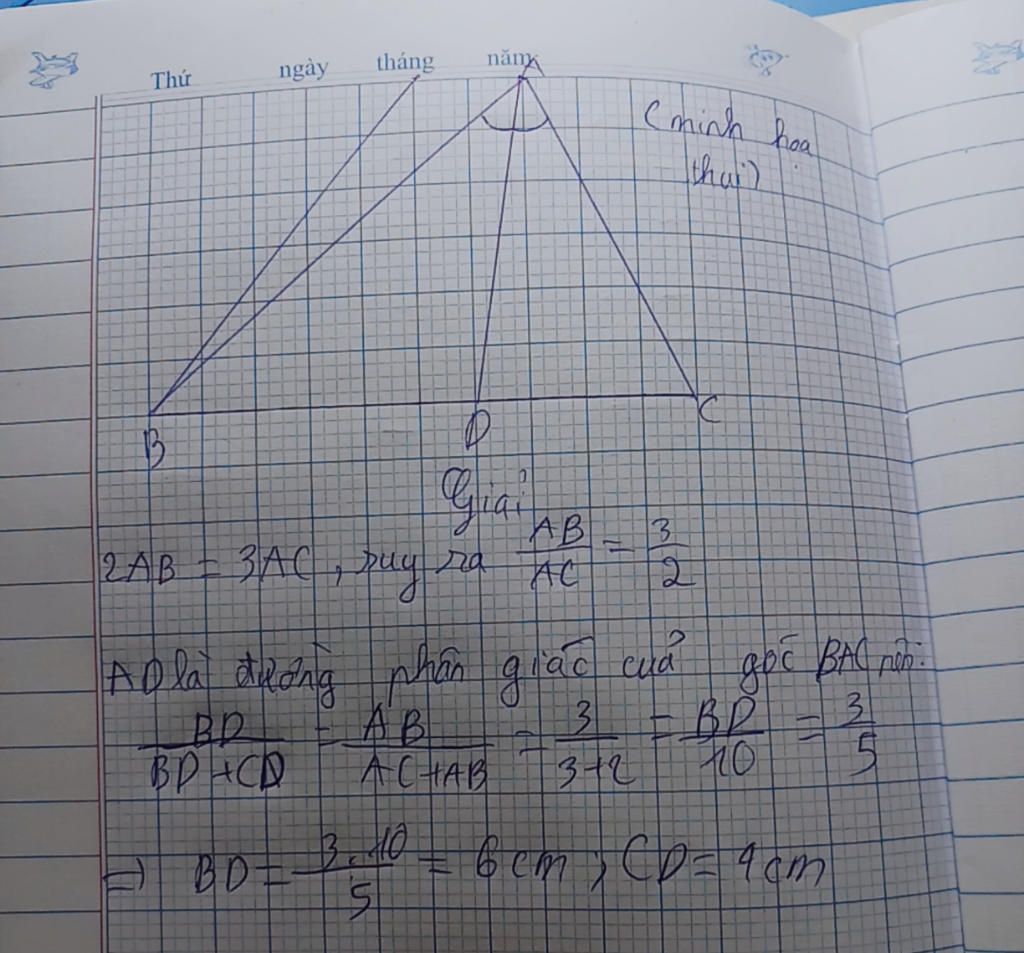 Thứ ngày tháng năm
A
(minh họa
thui)
B D C
Giải
2AB = 3AC, suy ra AB/AC = 3/2
AD là đường phân giác cuả góc BAC nên:
BD/BD+CD = AB/AC+AB = 3/3+2 = BD/10 = 3/5
=> BD = 3.10/5 = 6 cm ; CD = 4 cm